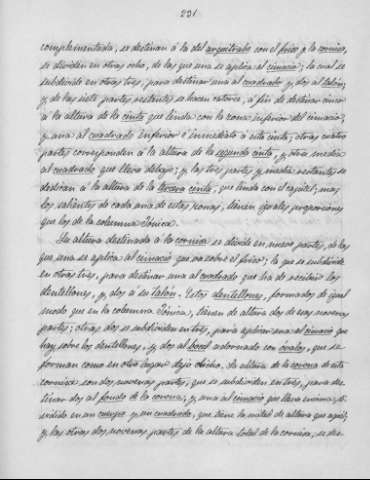 231.
complementada, se destinan á la del arquitrabe con el friso y la cornisa,
se dividen en otras ocho, de las que una se aplica al cimacio; la cual se
subdivide en otras tres, para destinar una al cuadrado y dos al talón;
y de las siete partes restantes se hacen catorce, á fin de destinar cinco
á la altura de la cinta que linda con la zona inferior del cimacio,
y una al cuadrado inferior é inmediato á esta cinta; otras cuatro
partes corresponden á la altura de la segunda cinta, y otra media
al cuadrado que lleva debajo; y las tres partes y media restantes se
destinan á la altura de la tercera cinta, que linda con el capitel; mas
los salientes de cada una de estas zonas, tienen iguales proporciones
que los de la columna Jónica.
La altura destinada á la cornisa se divide en nueve partes, de las
que una se aplica al cimacio que va sobre el friso; la que se subdivide
en otras tres, para destinar una al cuadrado que ha de recibir los
dentellones, y dos á su talón. Estos dentellones, formados de igual
modo que en la columna Jónica, tienen de altura dos de las novenas
partes; otras dos se subdividen en tres, para aplicar una al cimacio que
hay sobre los dentellones, y dos al bocel adornado con óvalos, que se
forman como en otro lugar dejo dicho. La altura de la corona de esta
cornisa son dos novenas partes, que se subdividen en tres, para des-
tinar dos al fondo de la corona; y una al cimacio que lleva encima, di-
vidido en un cuerpo y un cuadrado, que tiene la mitad de altura que aquel;
y las otras dos novenas partes de la altura total de la cornisa, se des-